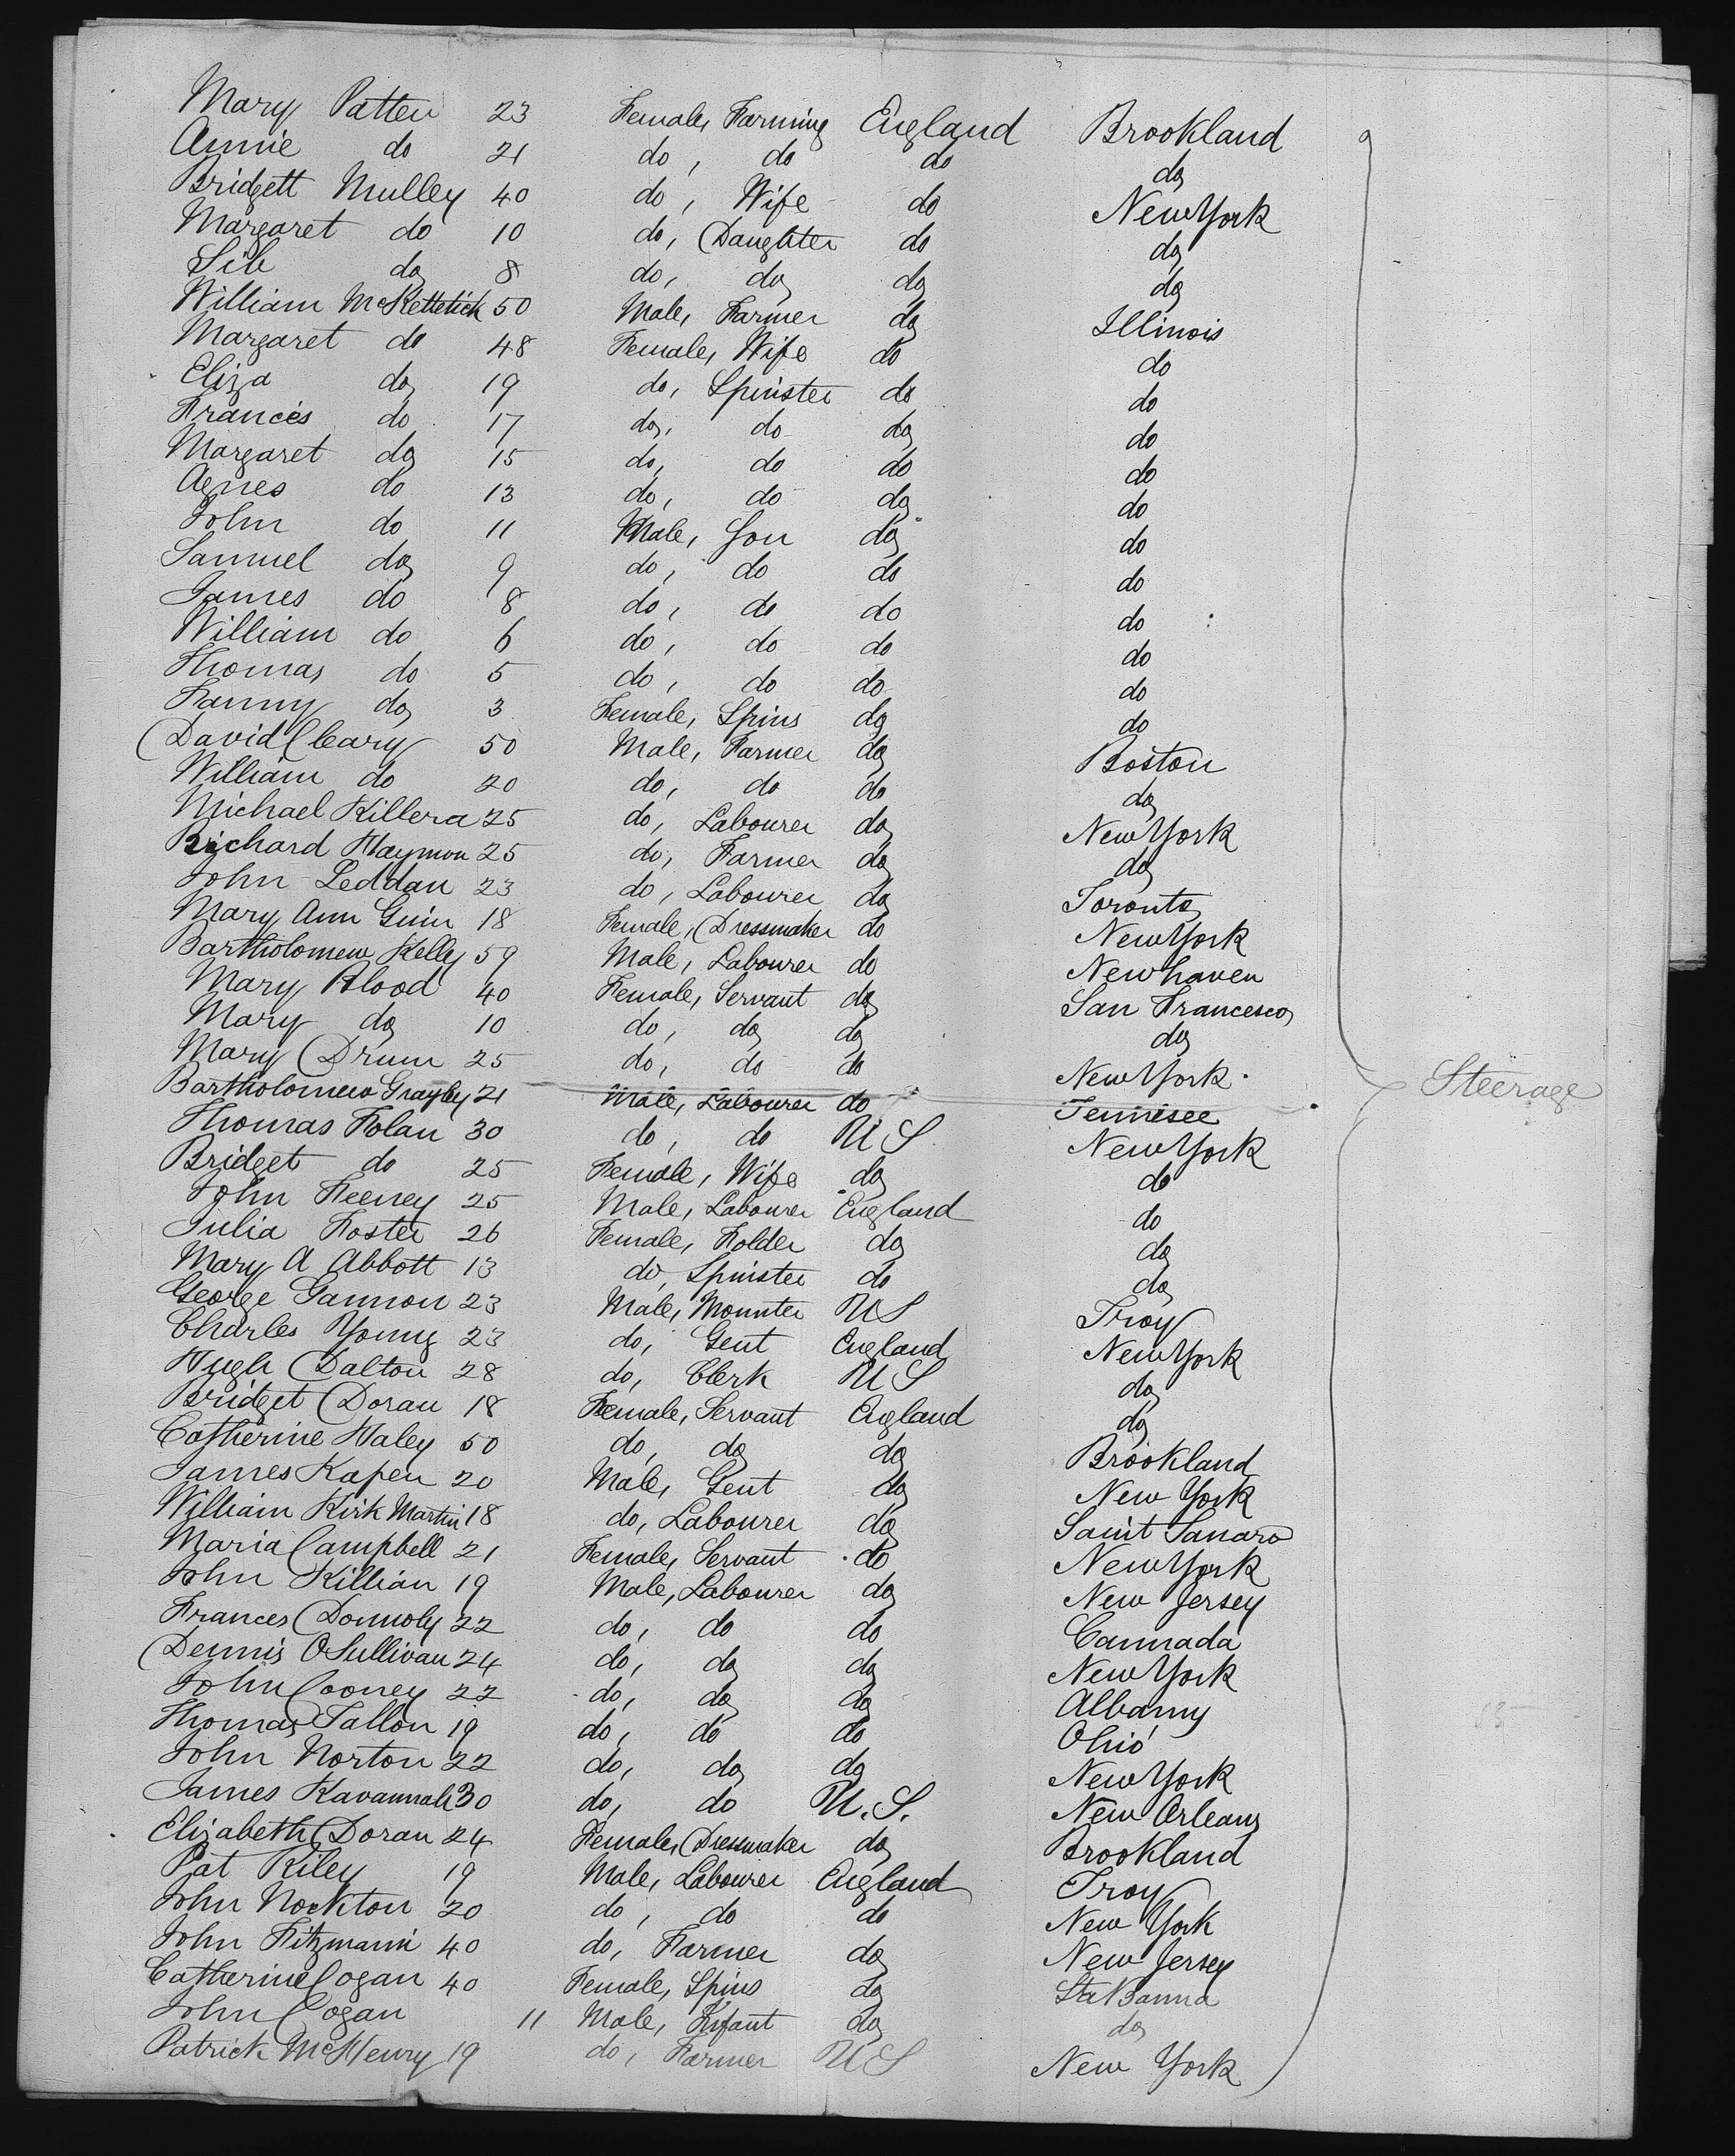 Mary Patten 23 Female, Farming England Brookland
Annie do 21 do, do do do
Bridgett Mulley 40 do, Wife do New York
Margaret do 10 do, Daughter do do
do 8 do, do do do
William McKettetick 50 Male, Farmer do Illinois
Margaret do 48 Female, Wife do do
Eliza do 19 do, Spinster do do
Francis do 17 do, do do do
Margaret do 15 do, do do do
Agnes do 13 do, do do do
John do 11 Male, Son do do
Samuel do 9 do, do do do
James do 8 do, do do do
William do 6 do, do do do
Thomas do 5 do, do do do
Fanny do 3 Female, Spins do do
David Cleary 50 Male, Farmer do Boston
William do 20 do, do do do
Michael Killera 25 do, Labourer do New York
Richard Haymon 25 do, Farmer do do
John Leddan 23 do, Labourer do Toronto
Mary Ann Guin 18 Female, Dressmaker do New York
Bartholomew Kelly 59 Male, Labourer do Newhaven
Mary Flood 40 Female, Servant do San Francesco
Mary do 10 do, do do do
Mary Drum 25 do, do do New York
Bartholomew 21 Male, Labourer do Tennisee
Steerage
Thomas Folan 30 do, do U S New York
Bridget do 25 Female, Wife do do
John Feeney 25 Male, Labourer England do
Julia Foster 26 Female, Folder do do
Mary A Abbott 13 do, Spinster do do
George Gannon 23 Male, Mounter U S Troy
Charles Young 23 do, Gent England New York
Hugh Dalton 28 do, Clerk U S do
Bridget Doran 18 Female, Servant England do
Catherine Haley 50 do, do do Brookland
James Kapen 20 Male, Gent do New York
William Kirk Martin 18 do, Labourer do Saint
Maria Campbell 21 Female, Servant do New York
John Killian 19 Male, Labourer do New Jersey
Frances Donnoly 22 do, do do Cannada
Dennis OSullivan 24 do, do do New York
John Cooney 22 do, do do Albany
Thomas Tallon 19 do, do do Ohio
John Norton 22 do, do do New York
James Kavannah 30 do, do U.S. New Orleans
Elizabeth Doran 24 Female, Dressmaker do Brookland
Pat Riley 19 Male, Labourer England Troy
John Nockton 20 do, do do New York
John Fitzmann 40 do, Farmer do New Jersey
Catherine Cogan 40 Female, Spins do
John Cogan 11 Male, Infant do do
Patrick McHenry 19 do, Farmer U S New York